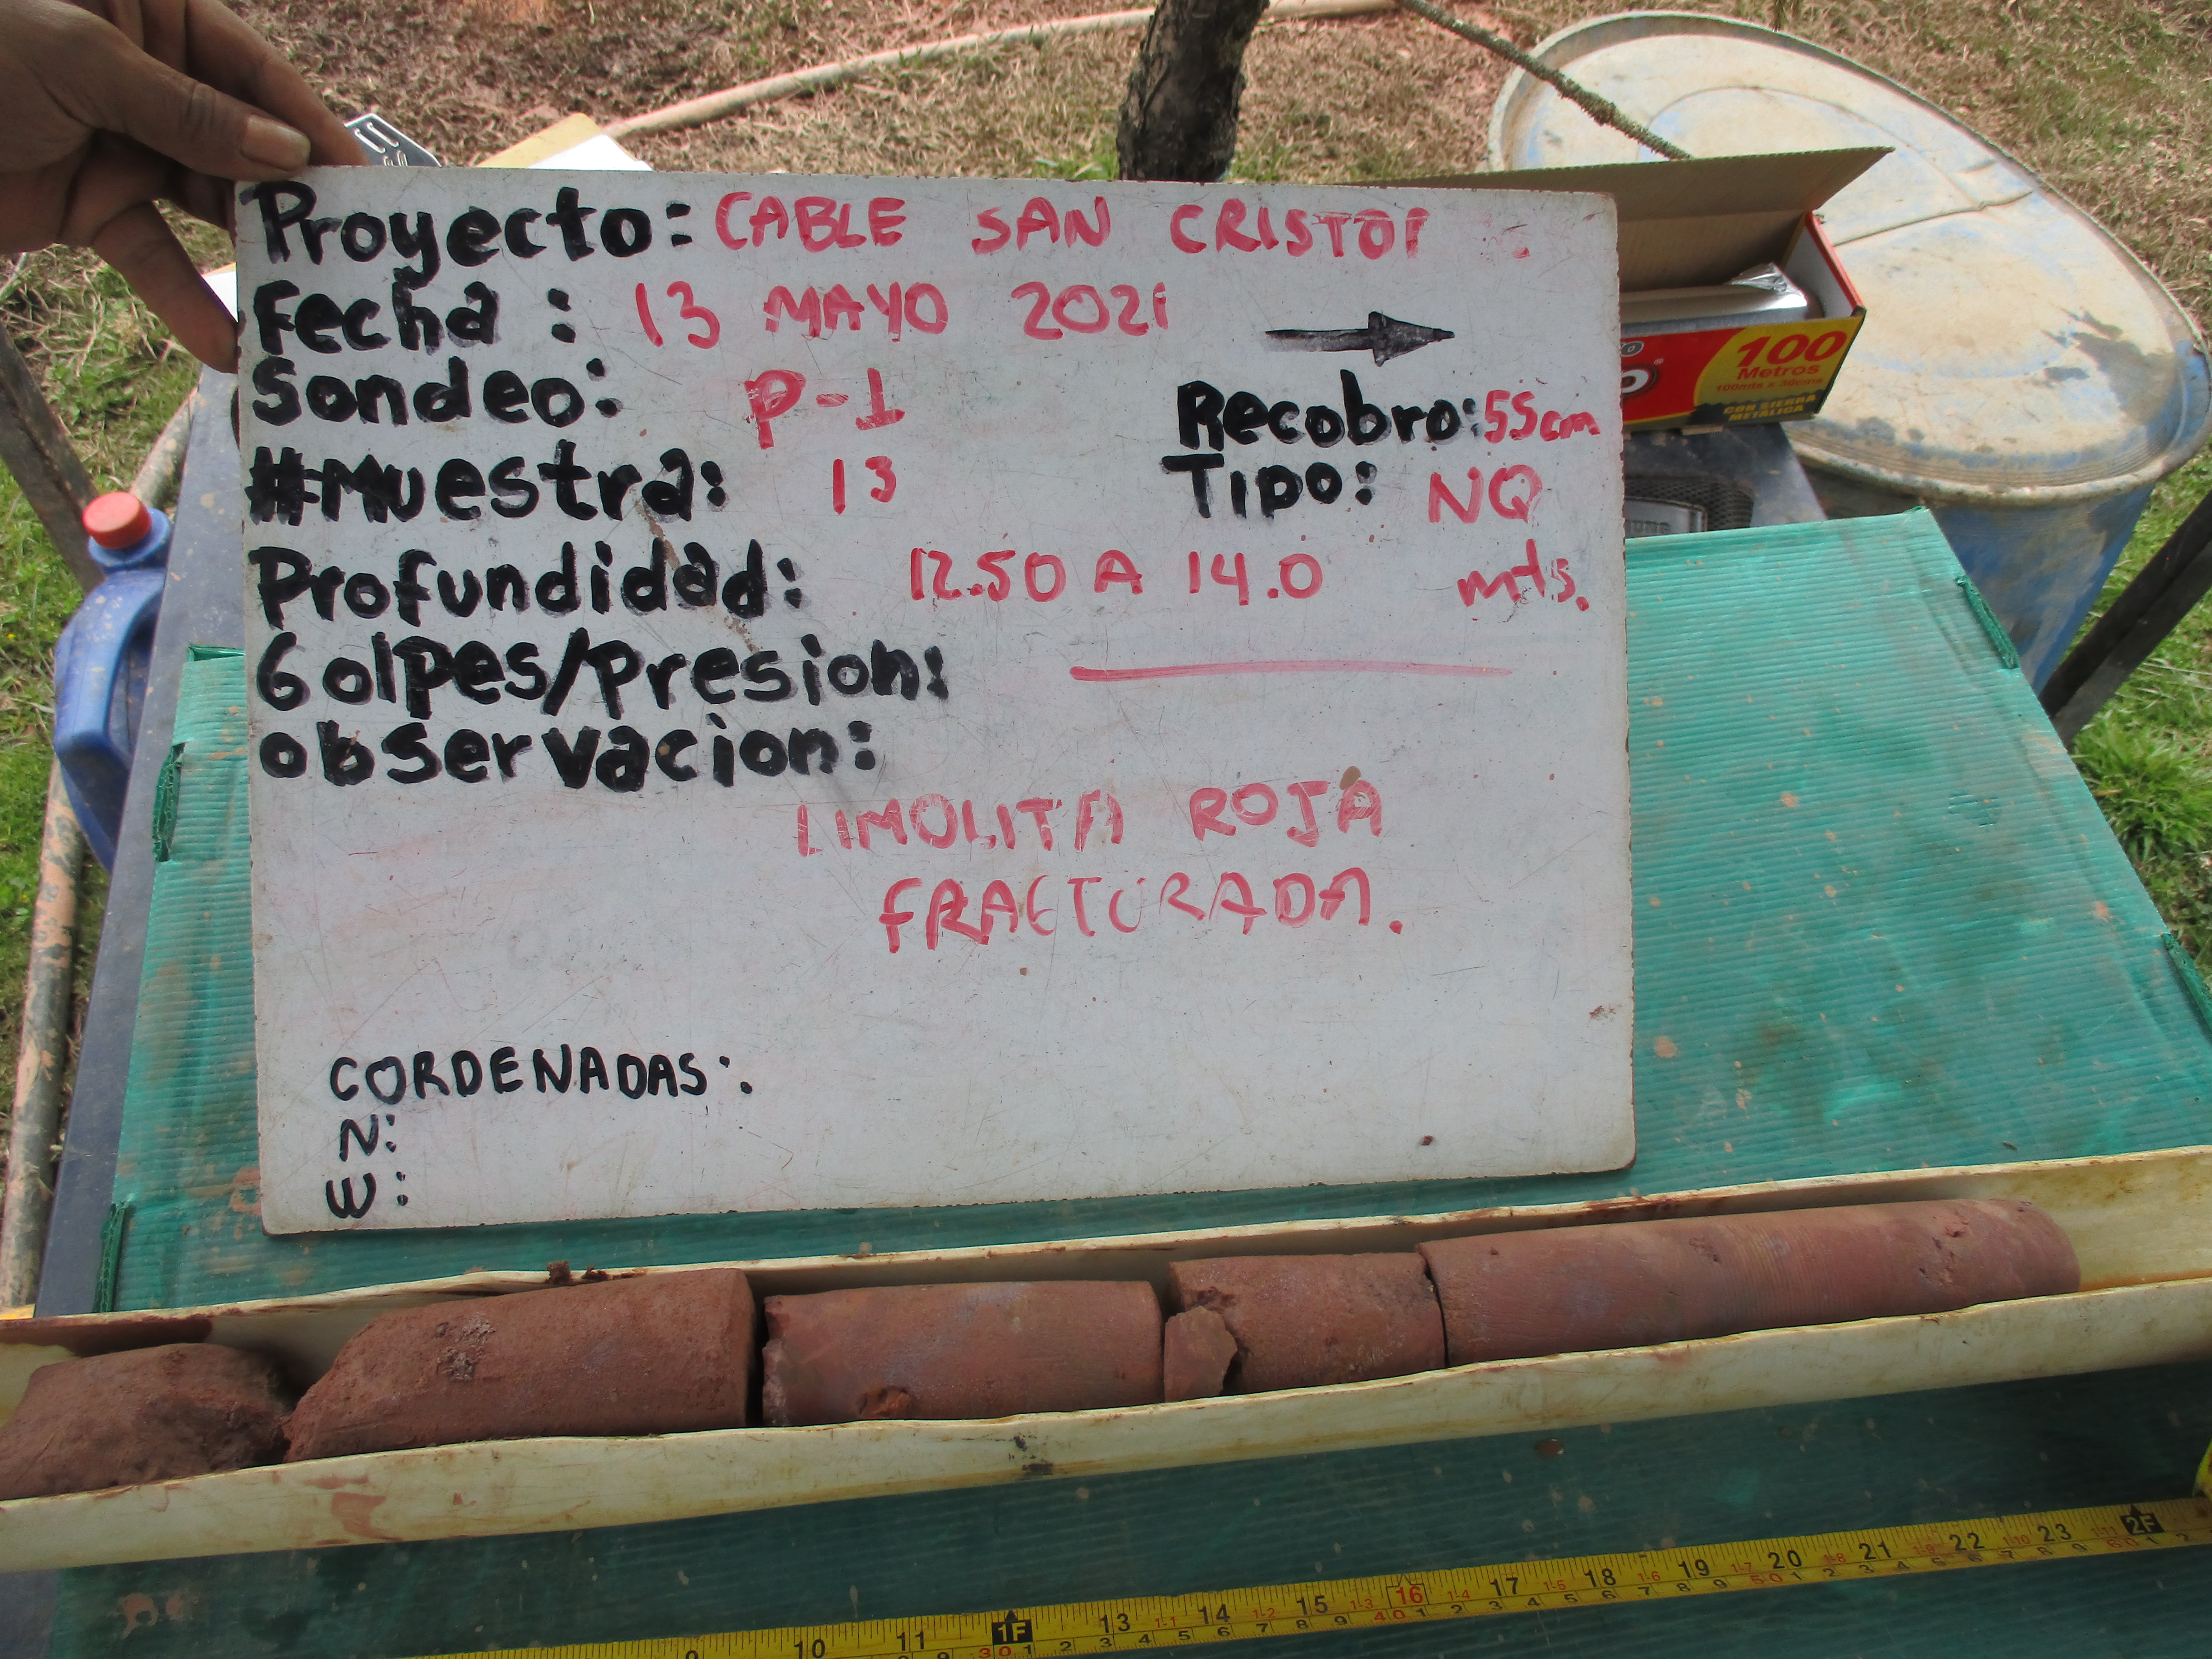 Proyecto: CABLE SAN CRISTO
Fecha : 13 MAYO 2021
Sondeo: P-1
Recobro: 55cm
#Muestra: 13
Tipo: NQ
Profundidad: 12.50 A 14.0 mts.
Golpes/Presion:
observacion:
LIMOLITA ROJA
FRACTURADA.
CORDENADAS:
N:
W:
100
Metros
CON SIERRA
METÁLICA
10 11 1F 13 14 15 16 17 18 19 20 21 22 23 2F